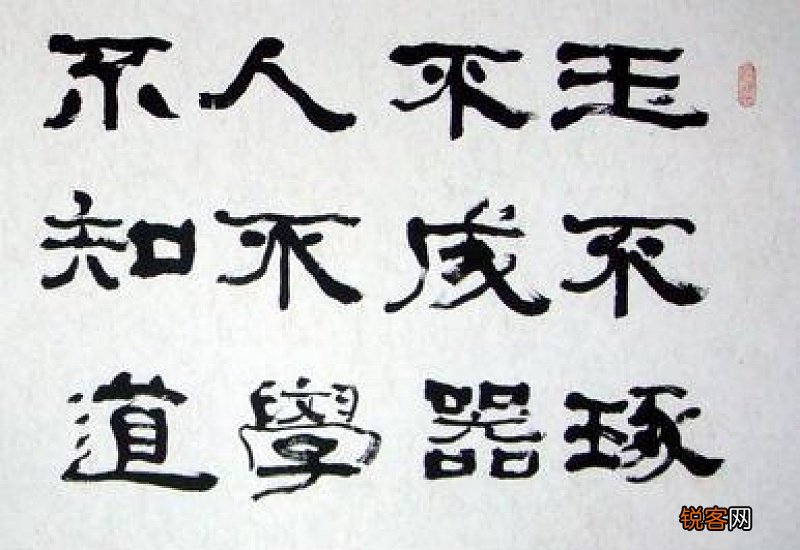 玉不琢
不成器
人不學
不知道
锐客网